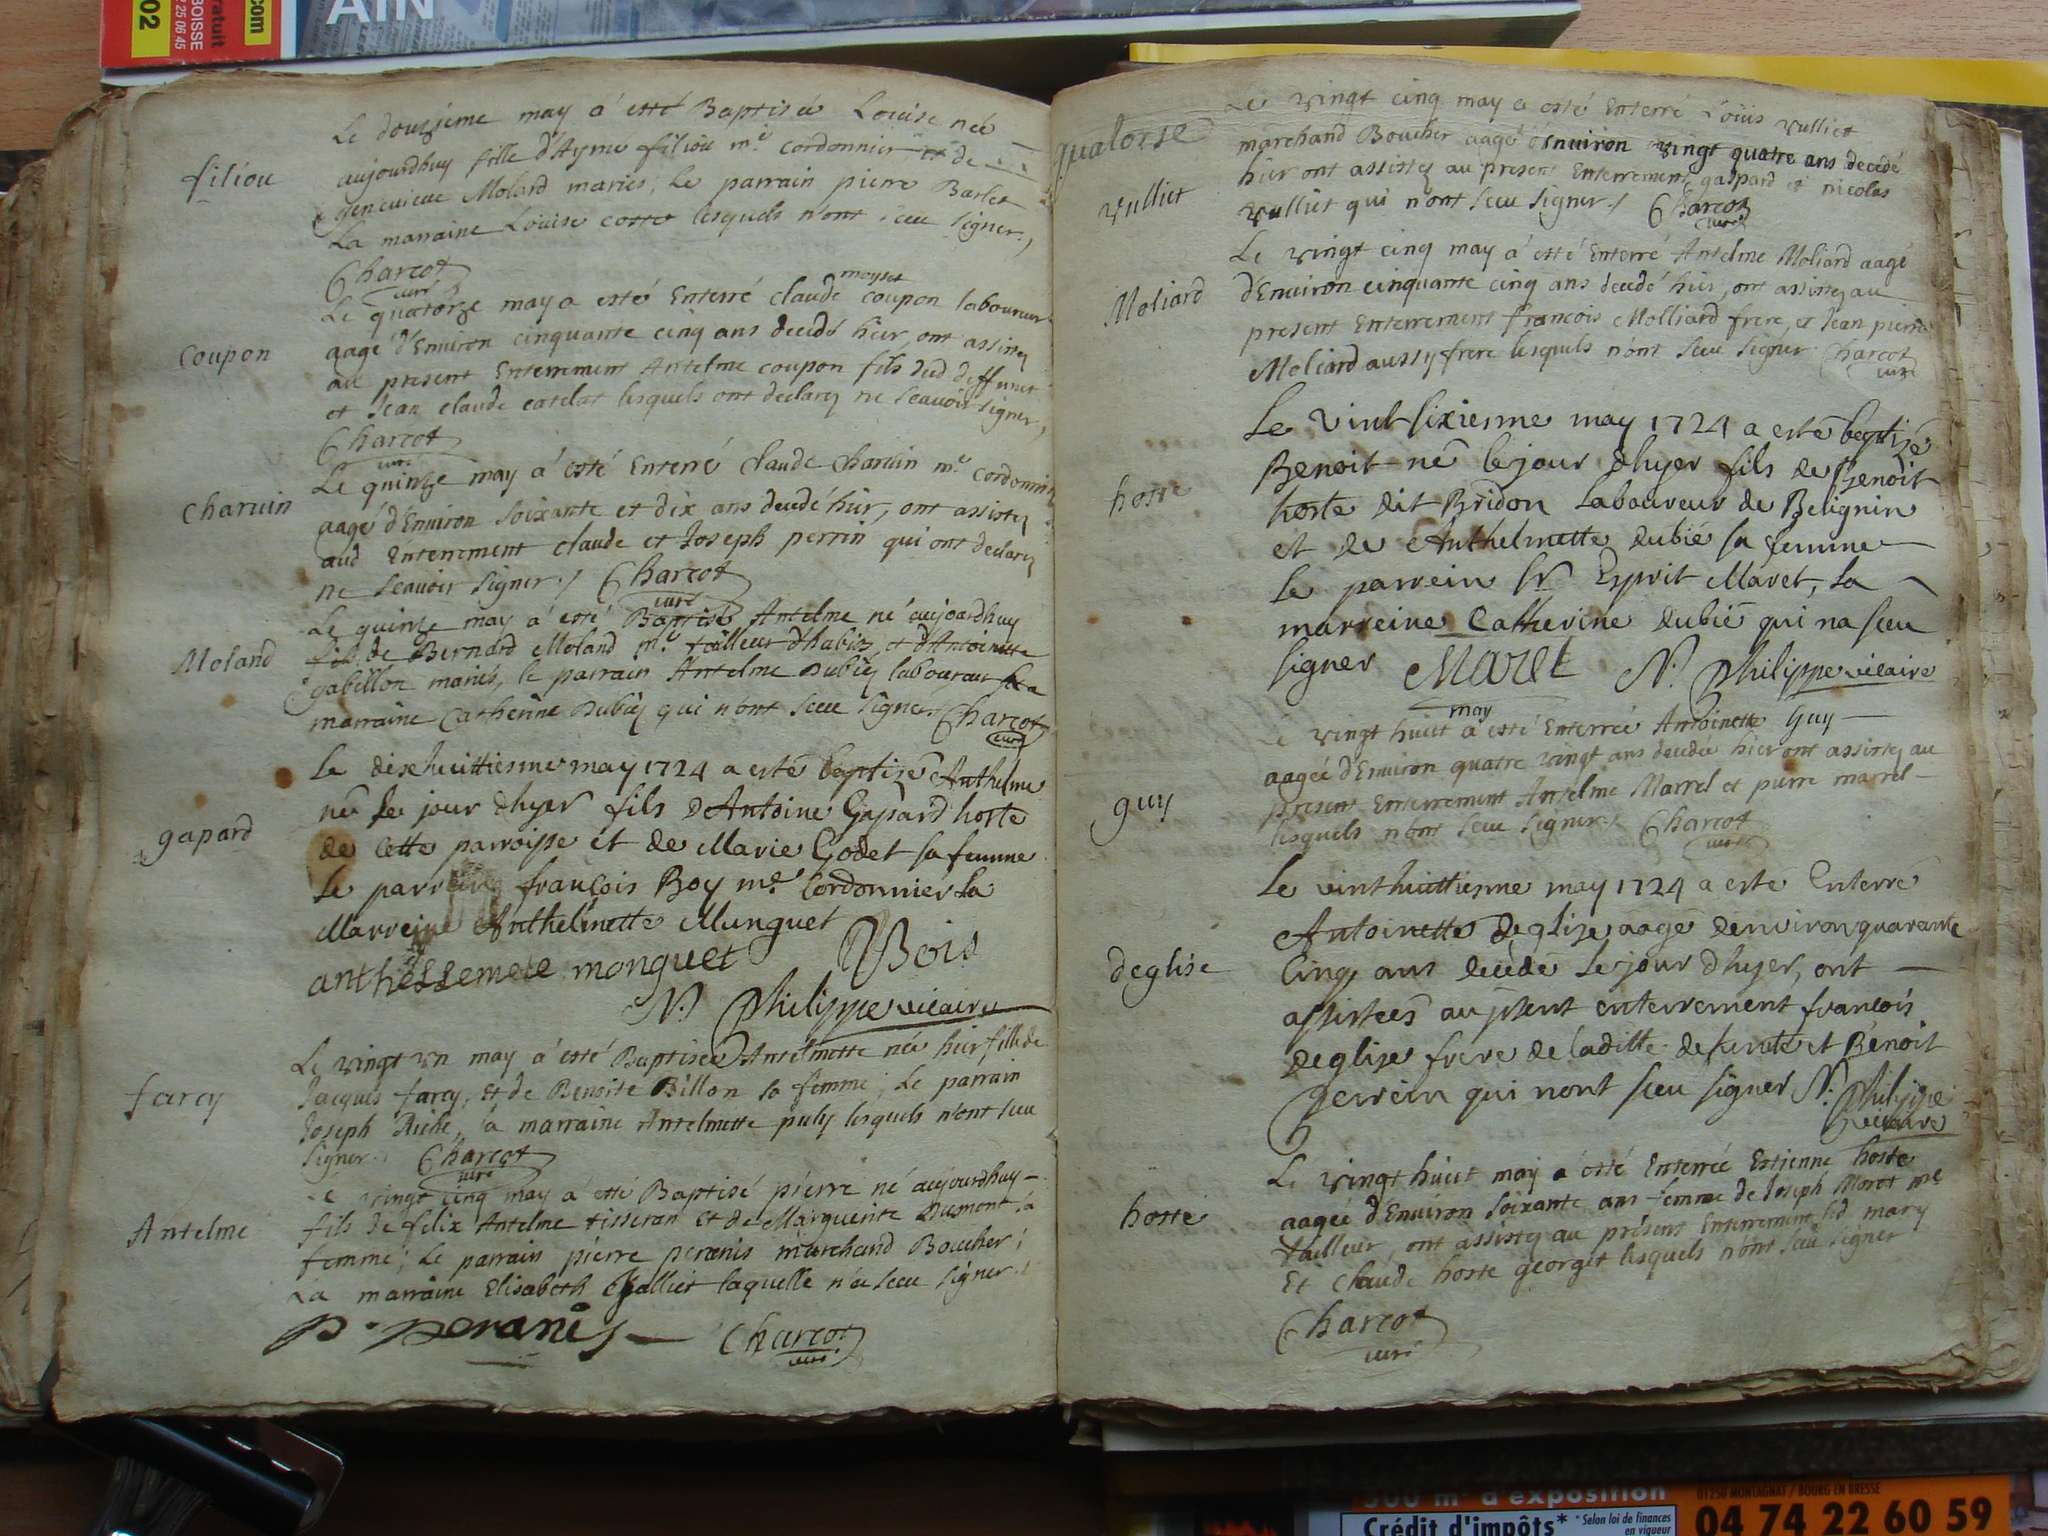 .com
ratuit
BOISSE
25 06 45
02
AIN
Le douzieme may a esté Baptisée Louise née
filiou
aujourdhuy fille d'Ayme filiou me. cordonnier et de
genevieve Molard mariés, Le parrain pierre Barlet
La marraine Louise coste lesquels n'ont sceu signer,
Charcot
curé
Le quatorze may a esté Enterré claude moyset coupon laboureur
coupon
aagé d'Environ cinquante cinq ans decedé hier, ont assistez
au present Enterrement Antelme coupon fils dud deffunct
et Jean claude catelat lesquels ont declarez ne scavoir signer,
Charcot
curé
Le quinze may a esté Enterré claude charvin me. cordonnier
charvin
aagé d'Environ soixante et dix ans decedé hier, ont assistez
aud Enterrement claude et Joseph perrin qui ont declarez
ne scavoir signer./ Charcot
curé
Le quinze may a esté Baptisé Antelme né aujourdhuy
Moland
fils de Bernard Moland me. tailleur d'habits, et d'Antoinette
gabillon mariés, le parrain Antelme Dubiez laboureur La
marraine Catherine Dubiez qui n'ont sceu signer Charcot
curé
Le dixhuittiesme may 1724 a esté baptizé Anthelme
né le jour dhyer fils d'Antoine Gapard hoste
gapard
de cette parroisse et de Marie Godet sa femme
Le parrein françois Boy me. Cordonnier La
Marreine Anthelmette Munguet
anthessemete monguet Bois
N. Philippe vicaire
Le vingt un may a esté Baptisée Antelmette née hier fille de
farcy
Jacques farcy, et de Benoite Billon sa femme, Le parrain
Joseph Riche, la marraine Antelmette puly lesquels n'ont sceu
signer. Charcot
curé
Le vingt cinq may a esté Baptisé pierre né aujourdhuy
Antelme
fils de felix Antelme tisseran et de Marguerite Dumont sa
femme; Le parrain pierre peranis marchand Boucher;
La marraine Elisabeth gallier laquelle n'a sceu signer
p. peranis Charcot
curé
Le vingt cinq may a esté Enterré Louis vulliet
vulliet
marchand Boucher aagé d'environ vingt quatre ans decedé
hier ont assistez au present Enterrement gaspard et nicolas
vulliet qui n'ont sceu signer./ Charcot
curé
Le vingt cinq may a esté Enterré Antelme Moliard aagé
Moliard
d'Environ cinquante cinq ans decedé hier, ont assistez au
present Enterrement francois Molliard frere, et Jean pierre
Moliard aussy frere lesquels n'ont sceu signer Charcot
curé
Le vint sixiesme may 1724 a esté baptizé
hoste
Benoit né le jour dhyer fils de Benoit
hoste dit Bridon Laboureur de Belignin
et de Anthelmette dubié sa femme
Le parrein Sr. Esprit Maret, La
marreine Catherine dubié qui na sceu
signer Maret N. Philippe vicaire
Le vingt huit may a esté Enterrée Antoinette Guy
guy
aagée d'Environ quatre vingt ans decedée hier ont assistez au
present Enterrement Antelme Marrel et pierre marrel
lesquels n'ont sceu signer./ Charcot
curé
Le vinthuittiesme may 1724 a esté Enterré
Antoinette Deglise aagé denviron quarante
deglise
Cinq ans decedé Le jour dhyer, ont
assistees au psent enterrement francois
deglise frere de laditte defunte et Benoit
perrein qui nont sceu signer N. Philippe
vicaire
Le vingt huit may a esté Enterrée Estienne hoste
hoste
aagée d'Environ soixante ans femme de Joseph Moret me
tailleur, ont assistez au présent Enterrement led mary
Et claude hoste georget lesquels n'ont sceu signer
Charcot
curé
500 m² d'exposition
Crédit d'impôts* *Selon loi de finances
en vigueur
01250 MONTAGNAT / BOURG EN BRESSE
04 74 22 60 59